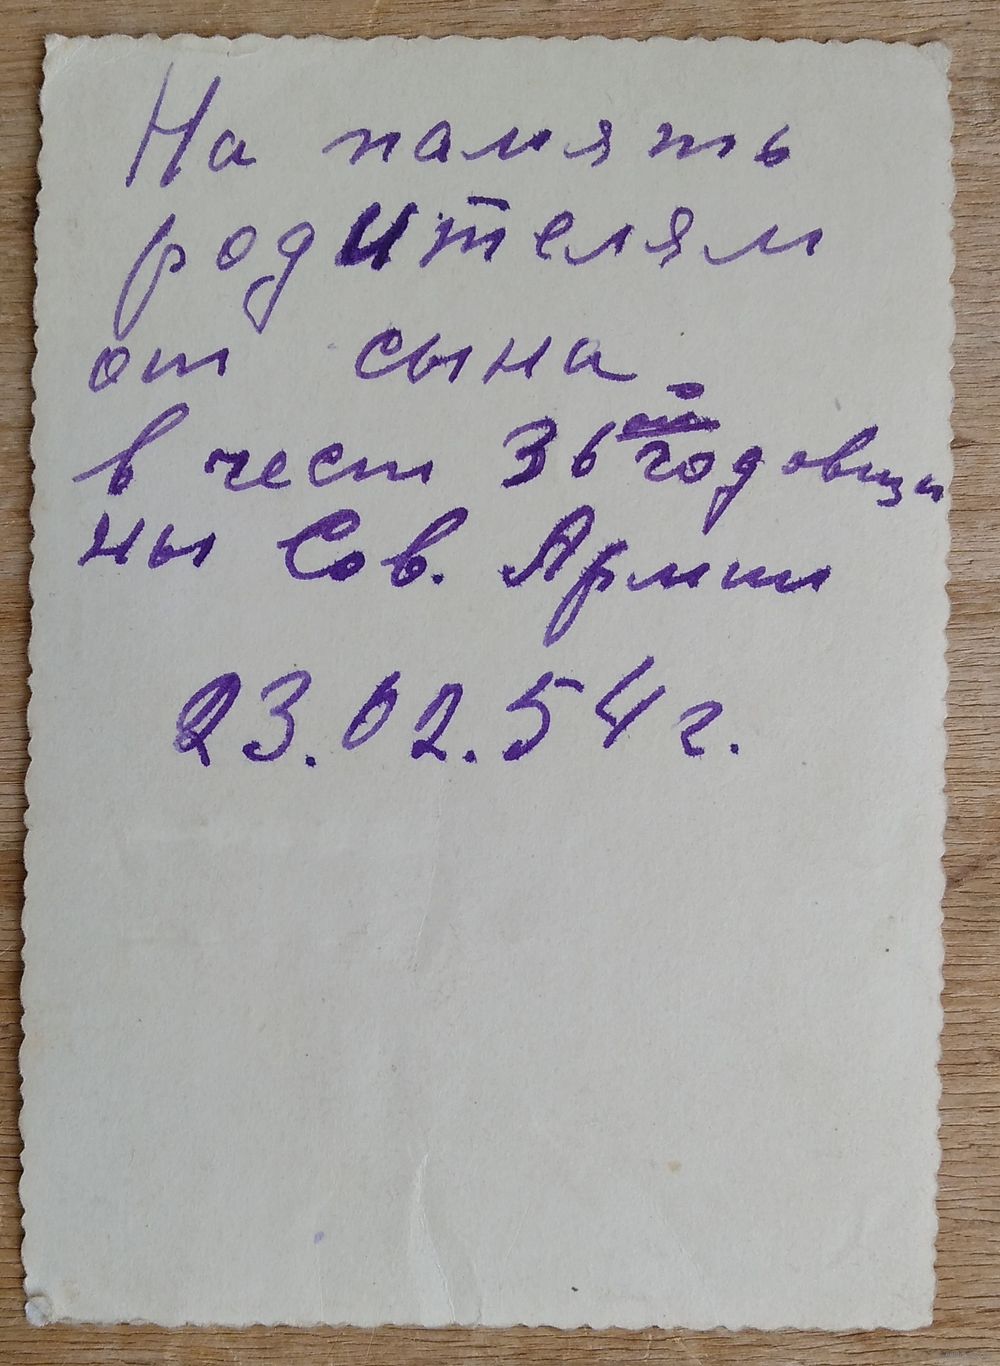 На память
родителям
от сына
в чест 36ой годовщи
ны Сов. Армии
23.02.54 г.